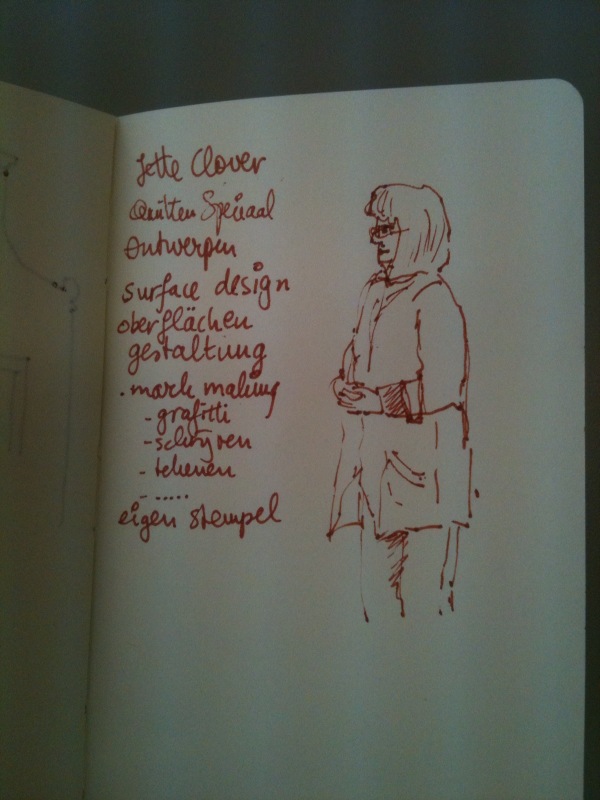 Jette Clover
Quilten Speciaal
Ontwerpen
surface design
oberflächen
gestaltung
. mark making
- grafitti
- schrijven
- tekenen
- .....
eigen stempel